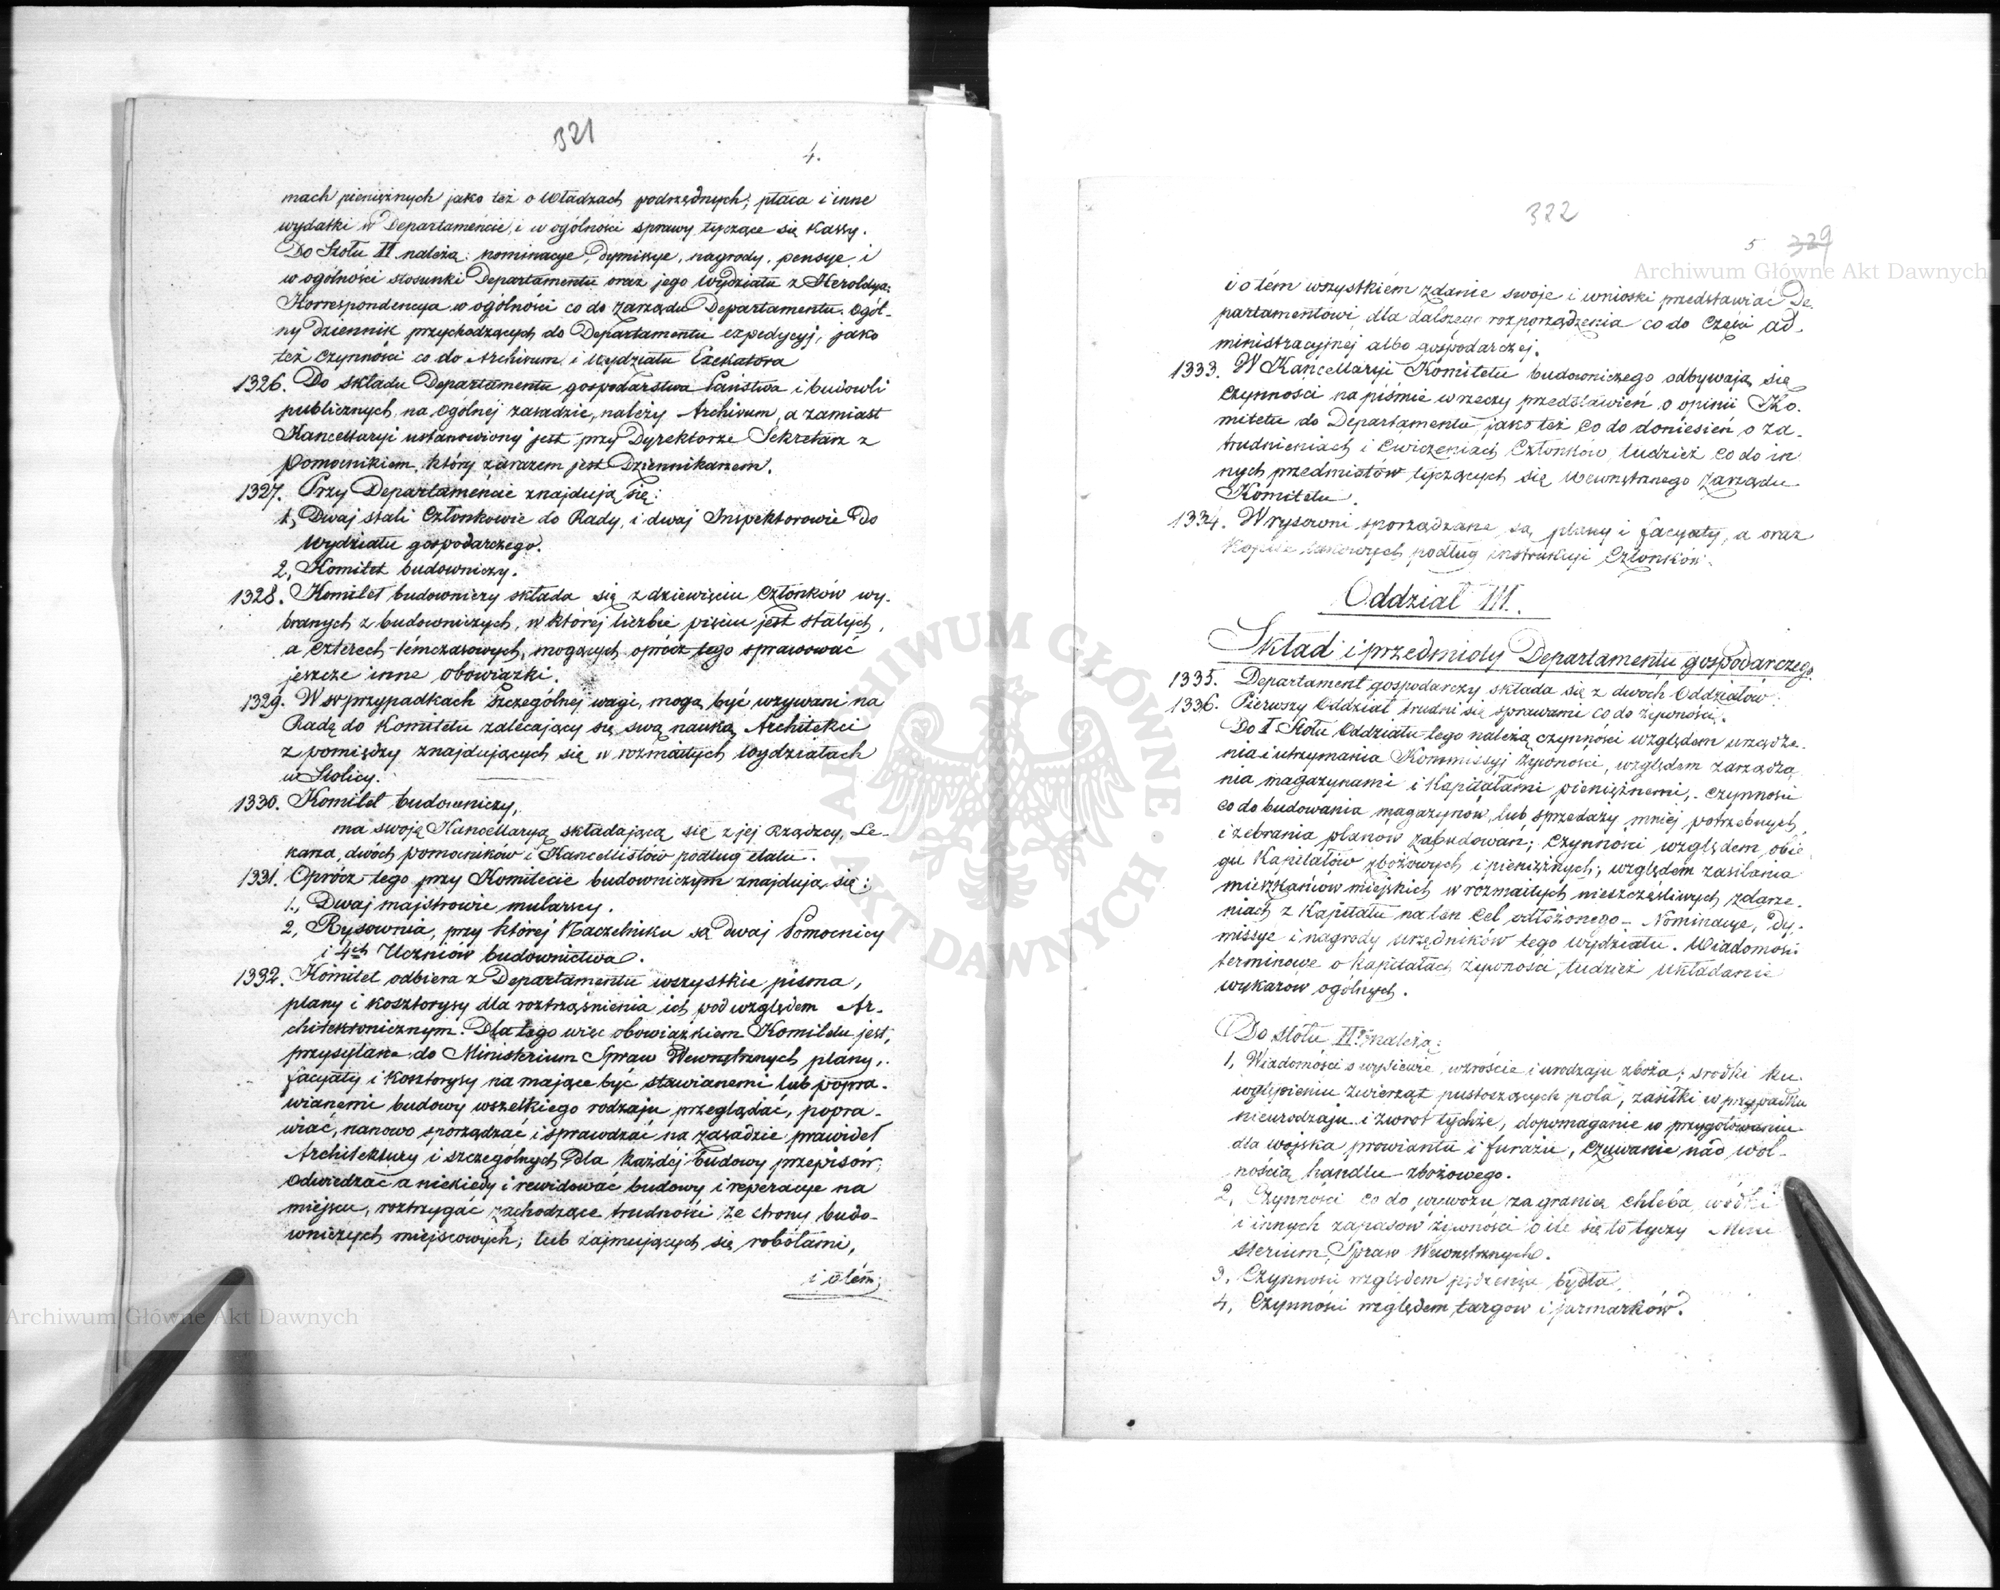 321
4.
mach pieniężnych jako też o Władzach podrzędnych; płaca i inne
wydatki w Departamencie, i w ogólności sprawy tyczące się Kassy.
Do Stołu II należą: nominacye, dymisye, nagrody, pensye, i
w ogólności stosunki Departamentu oraz jego Wydziału z Heroldyą;
Korrespondencya w ogólności co do zarządu Departamentu. Ogól-
ny dziennik przychodzących do Departamentu expedycyj, jako
też czynności co do Archiwum, i Wydziału Exekutora
1326. Do składu Departamentu gospodarstwa Państwa i budowli
publicznych, na ogólnej zasadzie, należy Archiwum, a zamiast
Kancellaryi ustanowiony jest przy Dyrektorze Sekretarz z
pomocnikiem, który zarazem jest Dziennikarzem.
1327. Przy Departamencie znajdują się:
1, Dwaj stali Członkowie do Rady, i dwaj Inspektorowie do
Wydziału gospodarczego.
2, Komitet budowniczy.
1328. Komitet budowniczy składa się z dziewięciu Członków wy-
branych z budowniczych, w której liczbie pięciu jest stałych,
a czterech témczasowych, mogących oprócz tego sprawować
jeszcze inne obowiązki.
1329. W w przypadkach szczególnej wagi, mogą być wzywani na
Radę do Komitetu zalecający się swą nauką Architekci
z pomiędzy znajdujących się w rozmaitych Wydziałach
w Stolicy.
1330. Komitet budowniczy,
ma swoją Kancellaryą składającą się z jej Rządzcy, Le-
karza, dwóch pomocników i Kancellistów podług etatu.
1331. Oprócz tego przy Komitecie budowniczym znajdują się:
1., Dwaj majstrowie mularscy.
2, Rysownia, przy której Naczelniku są dwaj Pomocnicy
i 4ch Uczniów budownictwa.
1332. Komitet odbiera z Departamentu wszystkie pisma,
plany i kosztorysy dla roztrząśnienia ich pod względem Ar-
chitektonicznym. Dla tego więc obowiązkiem Komitetu jest,
przysyłane do Ministerium Spraw Wewnętrznych plany,
facyaty i kosztorysy na mające być stawianemi lub popra-
wianemi budowy wszelkiego rodzaju przeglądać, popra-
wiać, nanowo sporządzać i sprawdzać na zasadzie prawideł
Architektury i szczególnych dla każdéj budowy przepisów;
odwiedzać a niekiedy i rewidować budowy i reperacye na
miejscu, roztrzygać zachodzące trudności ze strony budo-
wniczych miejscowych; lub zajmujących się robotami,
i otém;
322
5 329
i o tém wszystkiém zdanie swoje i wnioski przedstawiać De-
partamentowi dla dalszego rozporządzenia co do części ad-
ministracyjnej albo gospodarczej.
1333. W Kancellaryi Komitetu budowniczego odbywają się
czynności na piśmie w rzeczy przedstawień o opinii Ko-
mitetu do Departamentu, jako też co do doniesień o za-
trudnieniach i ćwiczeniach Członków, tudzież co do in-
nych przedmiotów tyczących się Wewnętrznego Zarządu
Komitetu.
1334. W rysowni sporządzane są, plany i facyaty, a oraz
kopije podług instrukcyi Członków.
Oddział III.
Skład i przedmioty Departamentu gospodarczego.
1335. Departament gospodarczy składa się z dwóch Oddziałów:
1336. Pierwszy Oddział trudni się sprawami co do żywności.
Do I Stołu Oddziału tego należą czynności względem urządze-
nia i utrzymania Kommissyj żywności, względem zarządza-
nia magazynami i kapitałami pieniężnemi; czynności
co do budowania magazynów, lub sprzedaży mniej potrzebnych,
i zebrania planów zabudowań; czynności względem obie-
gu kapitałów zbożowych i pieniężnych; względem zasilania
mieszkańców miejskich w rozmaitych nieszczęśliwych zdarze-
niach z kapitału na ten cel odłożonego. Nominacye, Dy-
missye i nagrody urzędników tego wydziału. Wiadomości
terminowe o kapitałach żywności, tudzież układanie
wykazów ogólnych.
Do stołu IIgo należą:
1, Wiadomości o wysiewie, wzroście i urodzaju zboża; środki ku
wytępieniu zwierząt pustoszących pola, zasiłki w przypadku
nieurodzaju i zwrot tychże, dopomaganie w przygotowaniu
dla wojska prowiantu i furażu, czuwanie nad wol-
nością handlu zbożowego.
2, Czynności co do wywozu za granicę chleba, wódki
i innych zapasów żywności o ile się to tyczy Mini-
sterium Spraw Wewnętrznych.
3, Czynności względem pędzenia bydła.
4, Czynności względem targów i jarmarków.
Archiwum Główne Akt Dawnych
Archiwum Główne Akt Dawnych
ARCHIWUM GŁÓWNE AKT DAWNYCH